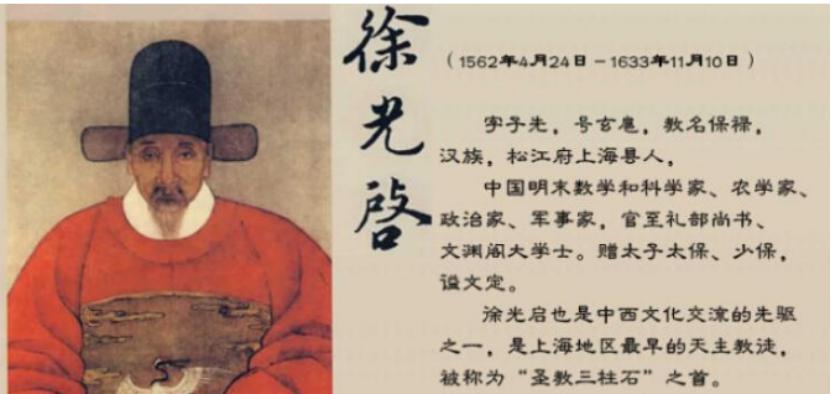 徐光啓
（1562年4月24日－1633年11月10日）
字子先，号玄扈，教名保禄，
汉族，松江府上海县人，
中国明末数学和科学家、农学家、
政治家、军事家，官至礼部尚书、
文渊阁大学士。赠太子太保、少保，
谥文定。
徐光启也是中西文化交流的先驱
之一，是上海地区最早的天主教徒，
被称为“圣教三柱石”之首。